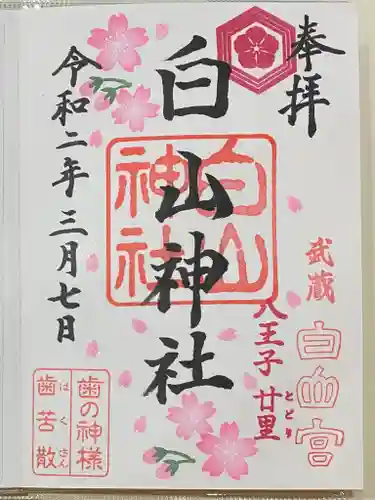 奉拝
武蔵
白山宮
八王子 廿里
とどり
白山神社
白山神社
令和二年三月七日
歯の神様
歯苦散
はくさん